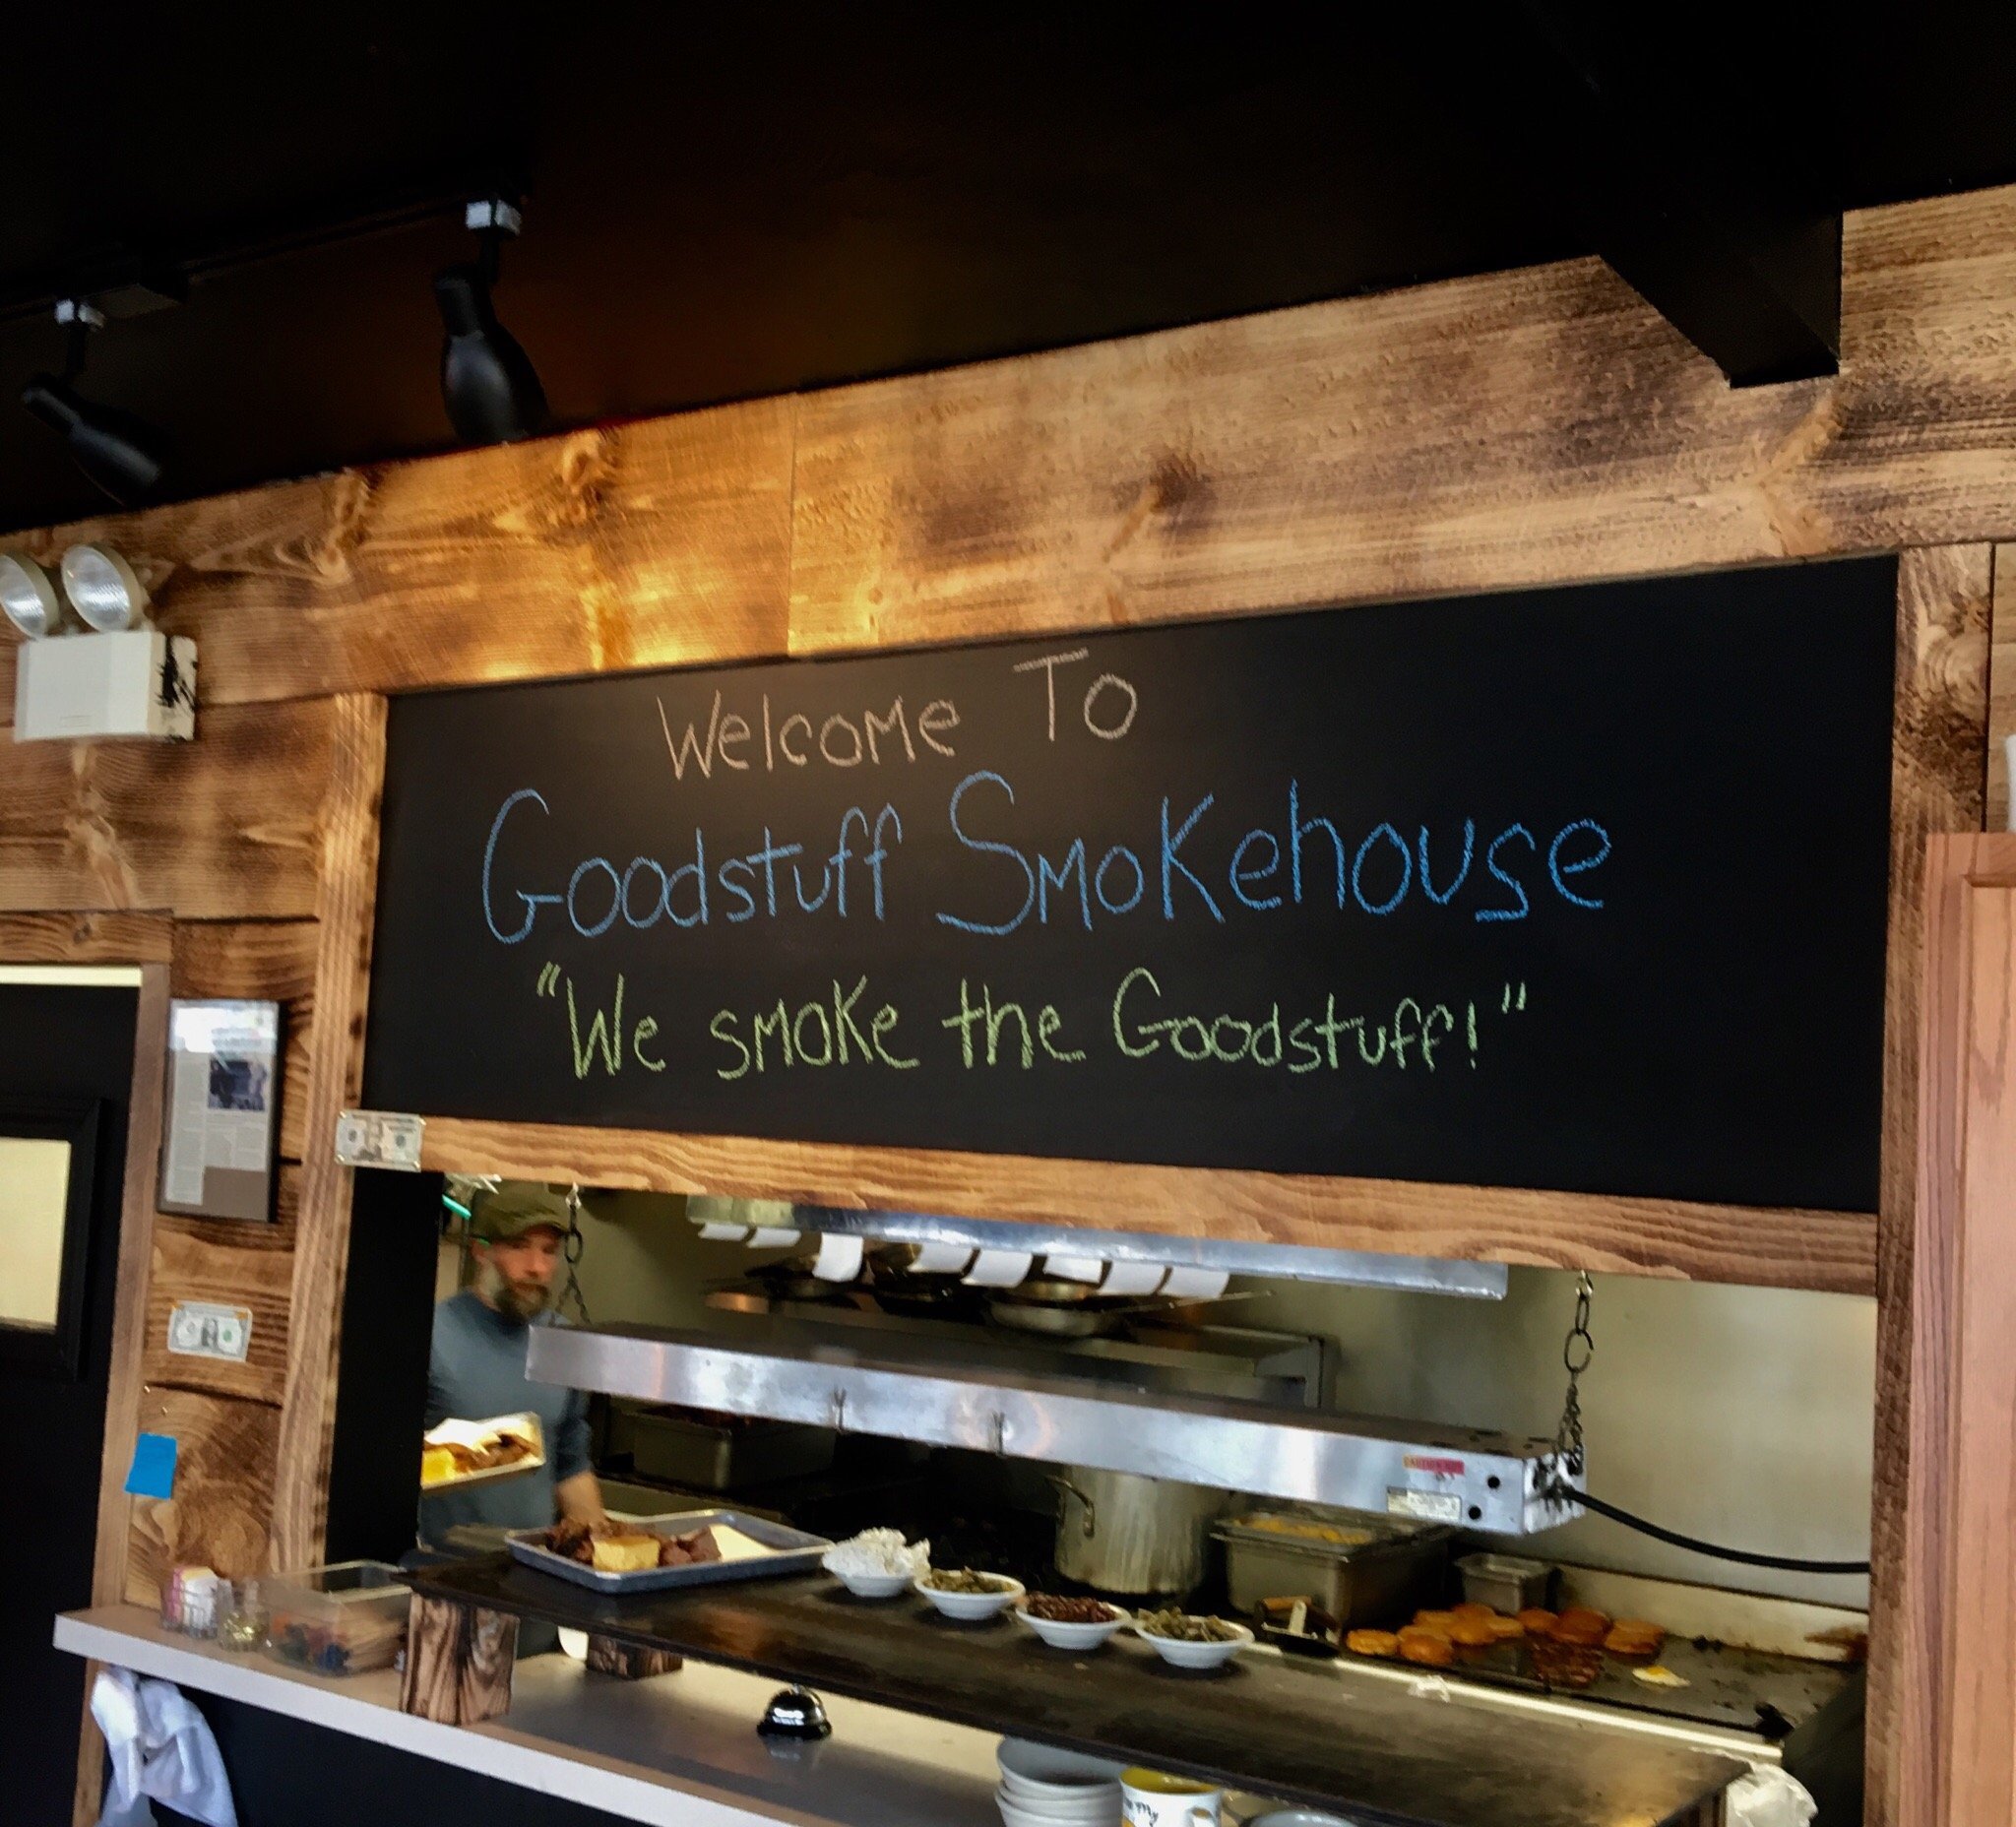 Welcome To
Goodstuff Smokehouse
"We smoke the Goodstuff!"